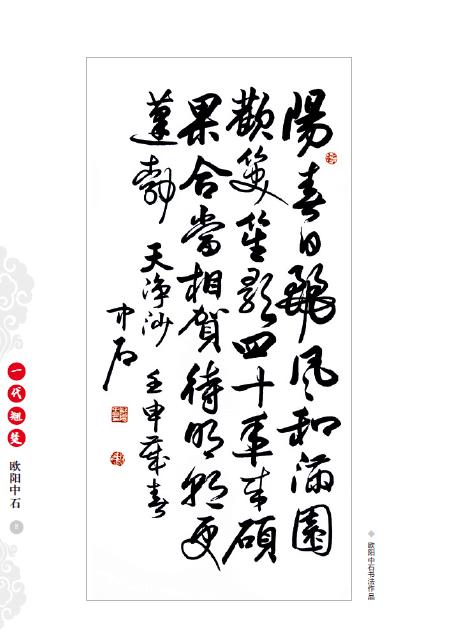 陽春日麗風和滿園
歡笑笙歌四十年來碩
果合當相賀待明朝更
蓬勃 天淨沙 壬申歲春
中石
一代翘楚
欧阳中石
8
欧阳中石书法作品